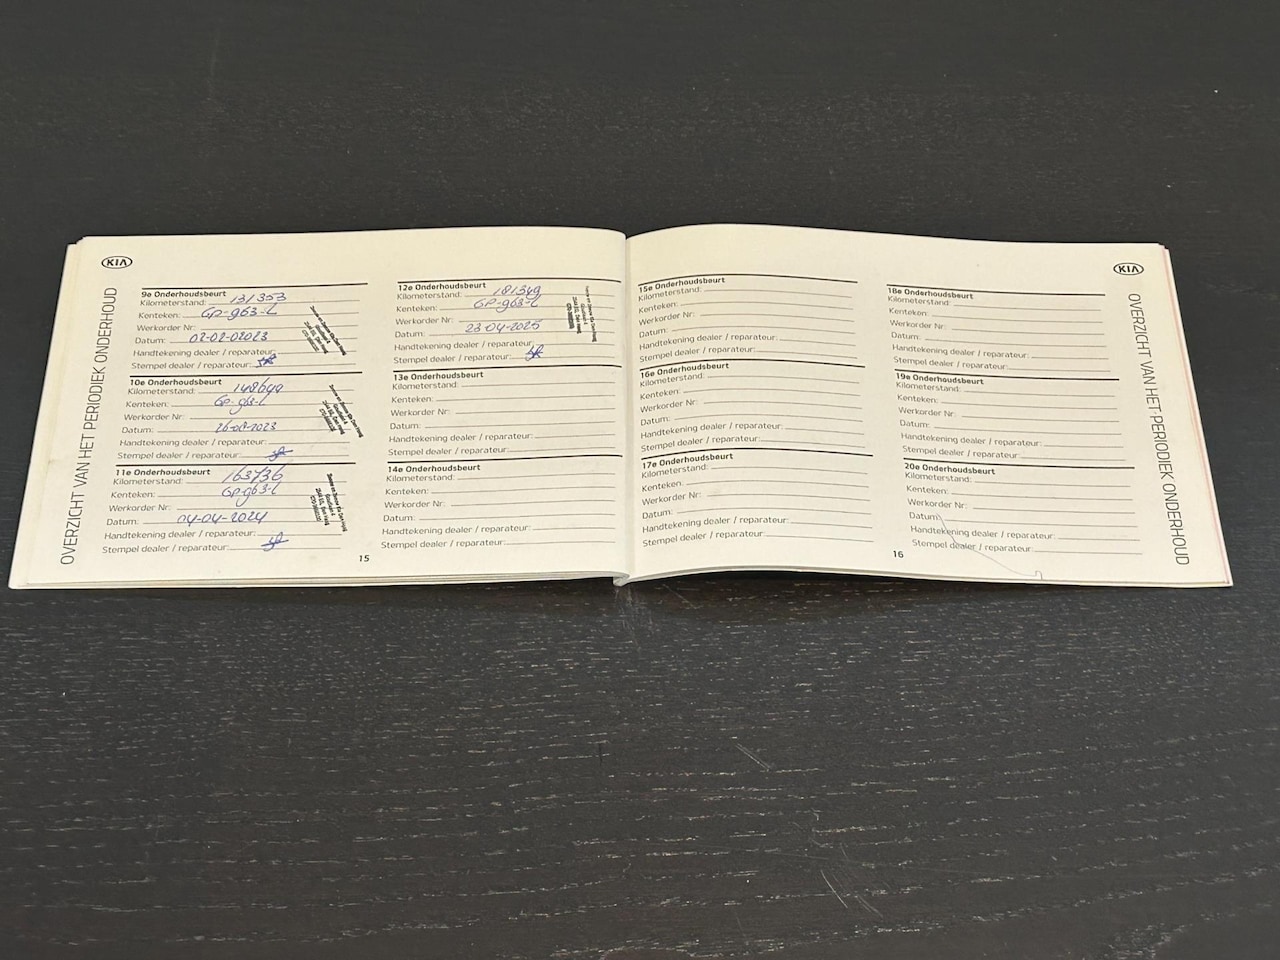 KIA
OVERZICHT VAN HET PERIODIEK ONDERHOUD
9e Onderhoudsbeurt
Kilometerstand: 131353
Kenteken: GP-963-L
Werkorder Nr:
Datum: 02-02-02023
Handtekening dealer / reparateur:
Stempel dealer / reparateur:
10e Onderhoudsbeurt
Kilometerstand: 148649
Kenteken: GP-963-L
Werkorder Nr:
Datum:
Handtekening dealer / reparateur:
Stempel dealer / reparateur:
11e Onderhoudsbeurt
Kilometerstand: 163736
Kenteken: GP-963-L
Werkorder Nr:
Datum: 04-04-2024
Handtekening dealer / reparateur:
Stempel dealer / reparateur:
12e Onderhoudsbeurt
Kilometerstand: 181349
Kenteken: GP-963-L
Werkorder Nr:
Datum: 23-04-2025
Handtekening dealer / reparateur:
Stempel dealer / reparateur:
13e Onderhoudsbeurt
Kilometerstand:
Kenteken:
Werkorder Nr:
Datum:
Handtekening dealer / reparateur:
Stempel dealer / reparateur:
14e Onderhoudsbeurt
Kilometerstand:
Kenteken:
Werkorder Nr:
Datum:
Handtekening dealer / reparateur:
Stempel dealer / reparateur:
15
15e Onderhoudsbeurt
Kilometerstand:
Kenteken:
Werkorder Nr:
Datum:
Handtekening dealer / reparateur:
Stempel dealer / reparateur:
16e Onderhoudsbeurt
Kilometerstand:
Kenteken:
Werkorder Nr:
Datum:
Handtekening dealer / reparateur:
Stempel dealer / reparateur:
17e Onderhoudsbeurt
Kilometerstand:
Kenteken:
Werkorder Nr:
Datum:
Handtekening dealer / reparateur:
Stempel dealer / reparateur:
18e Onderhoudsbeurt
Kilometerstand:
Kenteken:
Werkorder Nr:
Datum:
Handtekening dealer / reparateur:
Stempel dealer / reparateur:
19e Onderhoudsbeurt
Kilometerstand:
Kenteken:
Werkorder Nr:
Datum:
Handtekening dealer / reparateur:
Stempel dealer / reparateur:
20e Onderhoudsbeurt
Kilometerstand:
Kenteken:
Werkorder Nr:
Datum:
Handtekening dealer / reparateur:
Stempel dealer / reparateur:
16
KIA
OVERZICHT VAN HET PERIODIEK ONDERHOUD